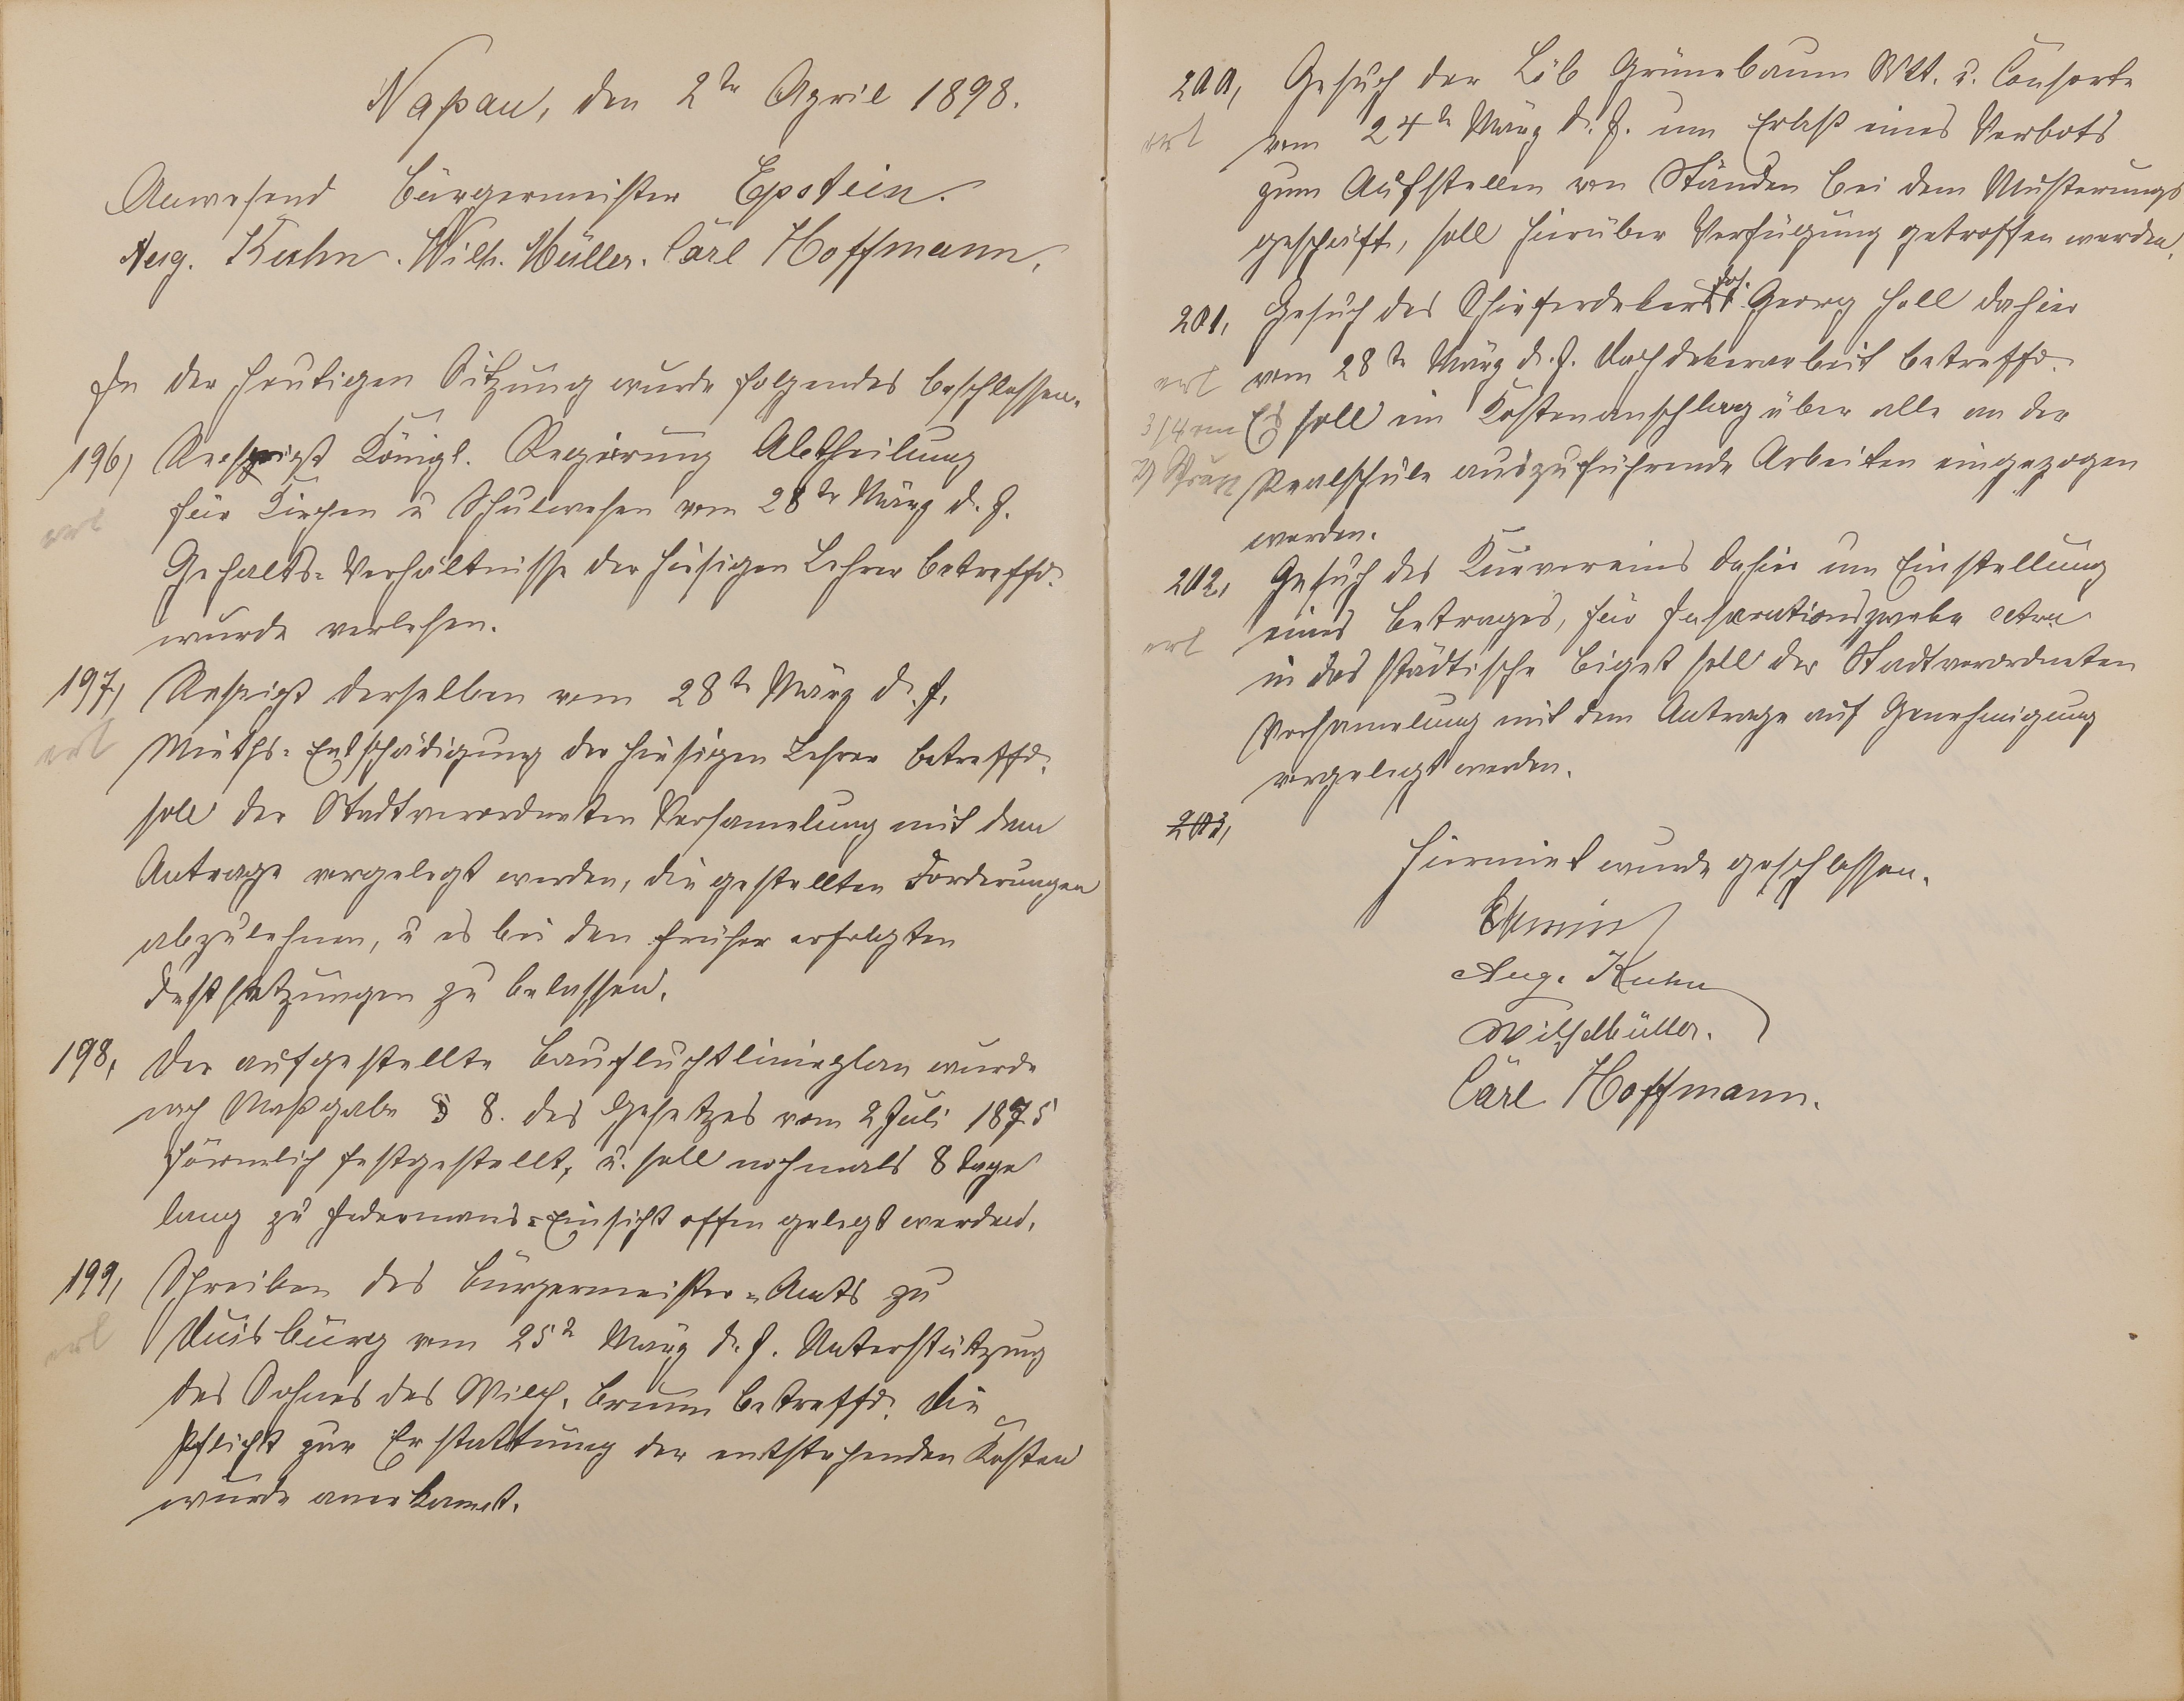 Naßau, den 2te April 1898.
Anwesend Bürgermeister Epstein.
Aug. Kuhn. Wilh. Müller. Carl Hoffmann.
In der heutigen Sitzung wurde folgendes beschlossen.
196, Rescript Königl. Regierung Abtheilung
erl
für Kirchen u Schulwesen vom 28te März d. J.
Gehalts-Verhältnisse der hiesigen Lehrer betreffd.
wurde verlesen.
197, Rescript derselben vom 28te März d. J.
erl
Mieths-Entschädigung der hiesigen Lehrer betreffd.
soll der Stadtverordneten Versamelung mit dem
Antrage vorgelegt werden, die gestellten Forderungen
abzulehnen, u es bei den früher erfolgten
Festsetzungen zu belassen.
198, Der aufgestellte Baufluchtlinieplan wurde
nach Maßgabe § 8. des Gesetzes vom 2 Juli 1875
förmlich festgestellt, u. soll nochmals 8 Tage
lang zu Jedermans-Einsicht offen gelegt werden.
199, Schreiben des Bürgermeister-Amts zu
erl
Duisburg vom 25te März d. J. Unterstützung
des Sohnes des Wilh. Brum betreffd. Die
Pflicht zur Erstattung der entstehenden Kosten
wurde anerkannt.
200, Gesuch der Löb Grünebaum Wtt. u. Consorte
erl
vom 24te März d. J. um Erlaß eines Verbots
zum Aufstellen von Ständen bei dem Musterungs
geschäft, soll hierüber Verfügung getroffen werden.
201, Gesuch des Schieferdekers Georg Holl dahier
erl
vom 28te März d. J. Dachdekerarbeit betreffd.
Es soll ein Kostenanschlag über alle an der
Realschule auszuführende Arbeiten eingezogen
werden.
202, Gesuch des Kurvereins dahier um Einstellung
erl
eines Betrages, für Insorationszweke etra
in das städtische Büget soll der Stadtverordneten
Versamelung mit dem Antrage auf Genehmigung
vorgelegt werden.
203,
Hiermit wurde geschlossen.
Epstein
Aug. Kuhn
Wilh Müller.
Carl Hoffmann.